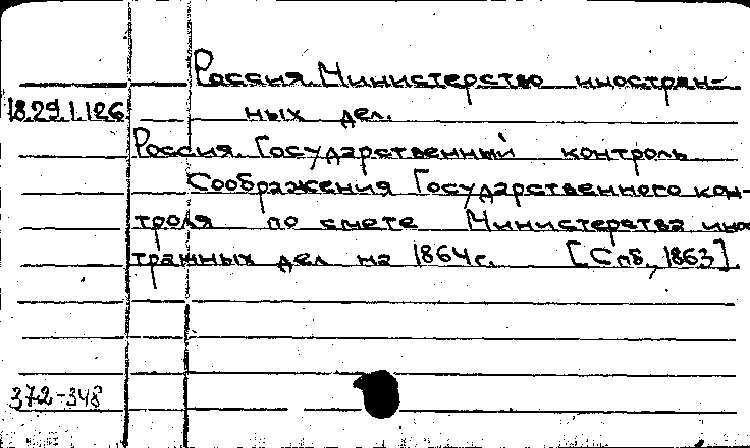 Россия. Министерство иностран-
18.29.1.126 ных дел.
Россия. Государственный контроль
Соображения Государственного кон-
троля по смете Министерства инос
транных дел на 1864 г. [Спб., 1863].
372-348